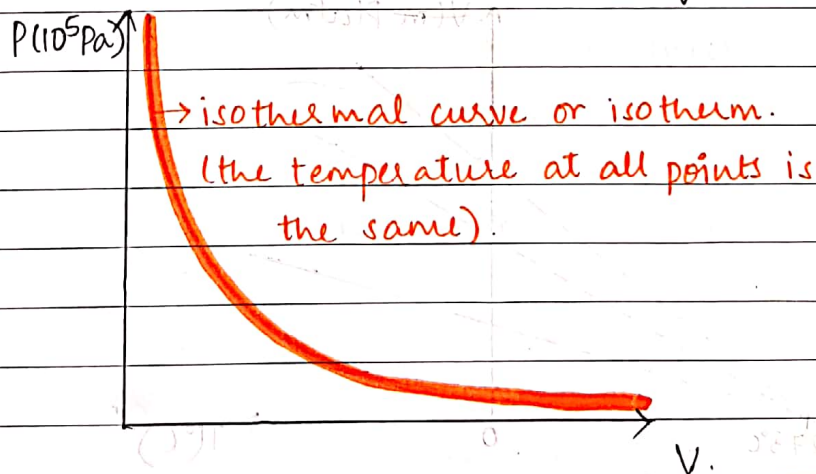 P(10⁵Pa)
→ isothermal curve or isotherm.
(the temperature at all points is
the same).
0
V.